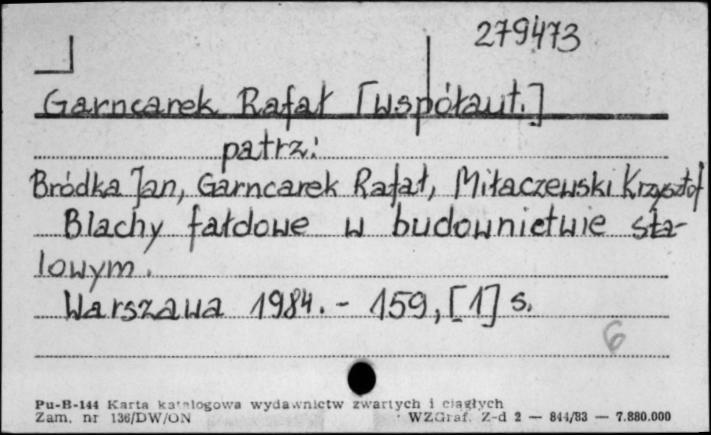 279473
Garncarek Rafał [współaut.]
patrz:
Bródka Jan, Garncarek Rafał, Miłaczewski Krzysztof
Blachy fałdowe w budownictwie sta-
lowym.
Warszawa 1984. - 159, [1] s.
6
Pu-B-144 Karta katalogowa wydawnictw zwartych i ciągłych
Zam. nr 136/DW/ON WZGraf. Z-d 2 — 844/83 — 7.880.000